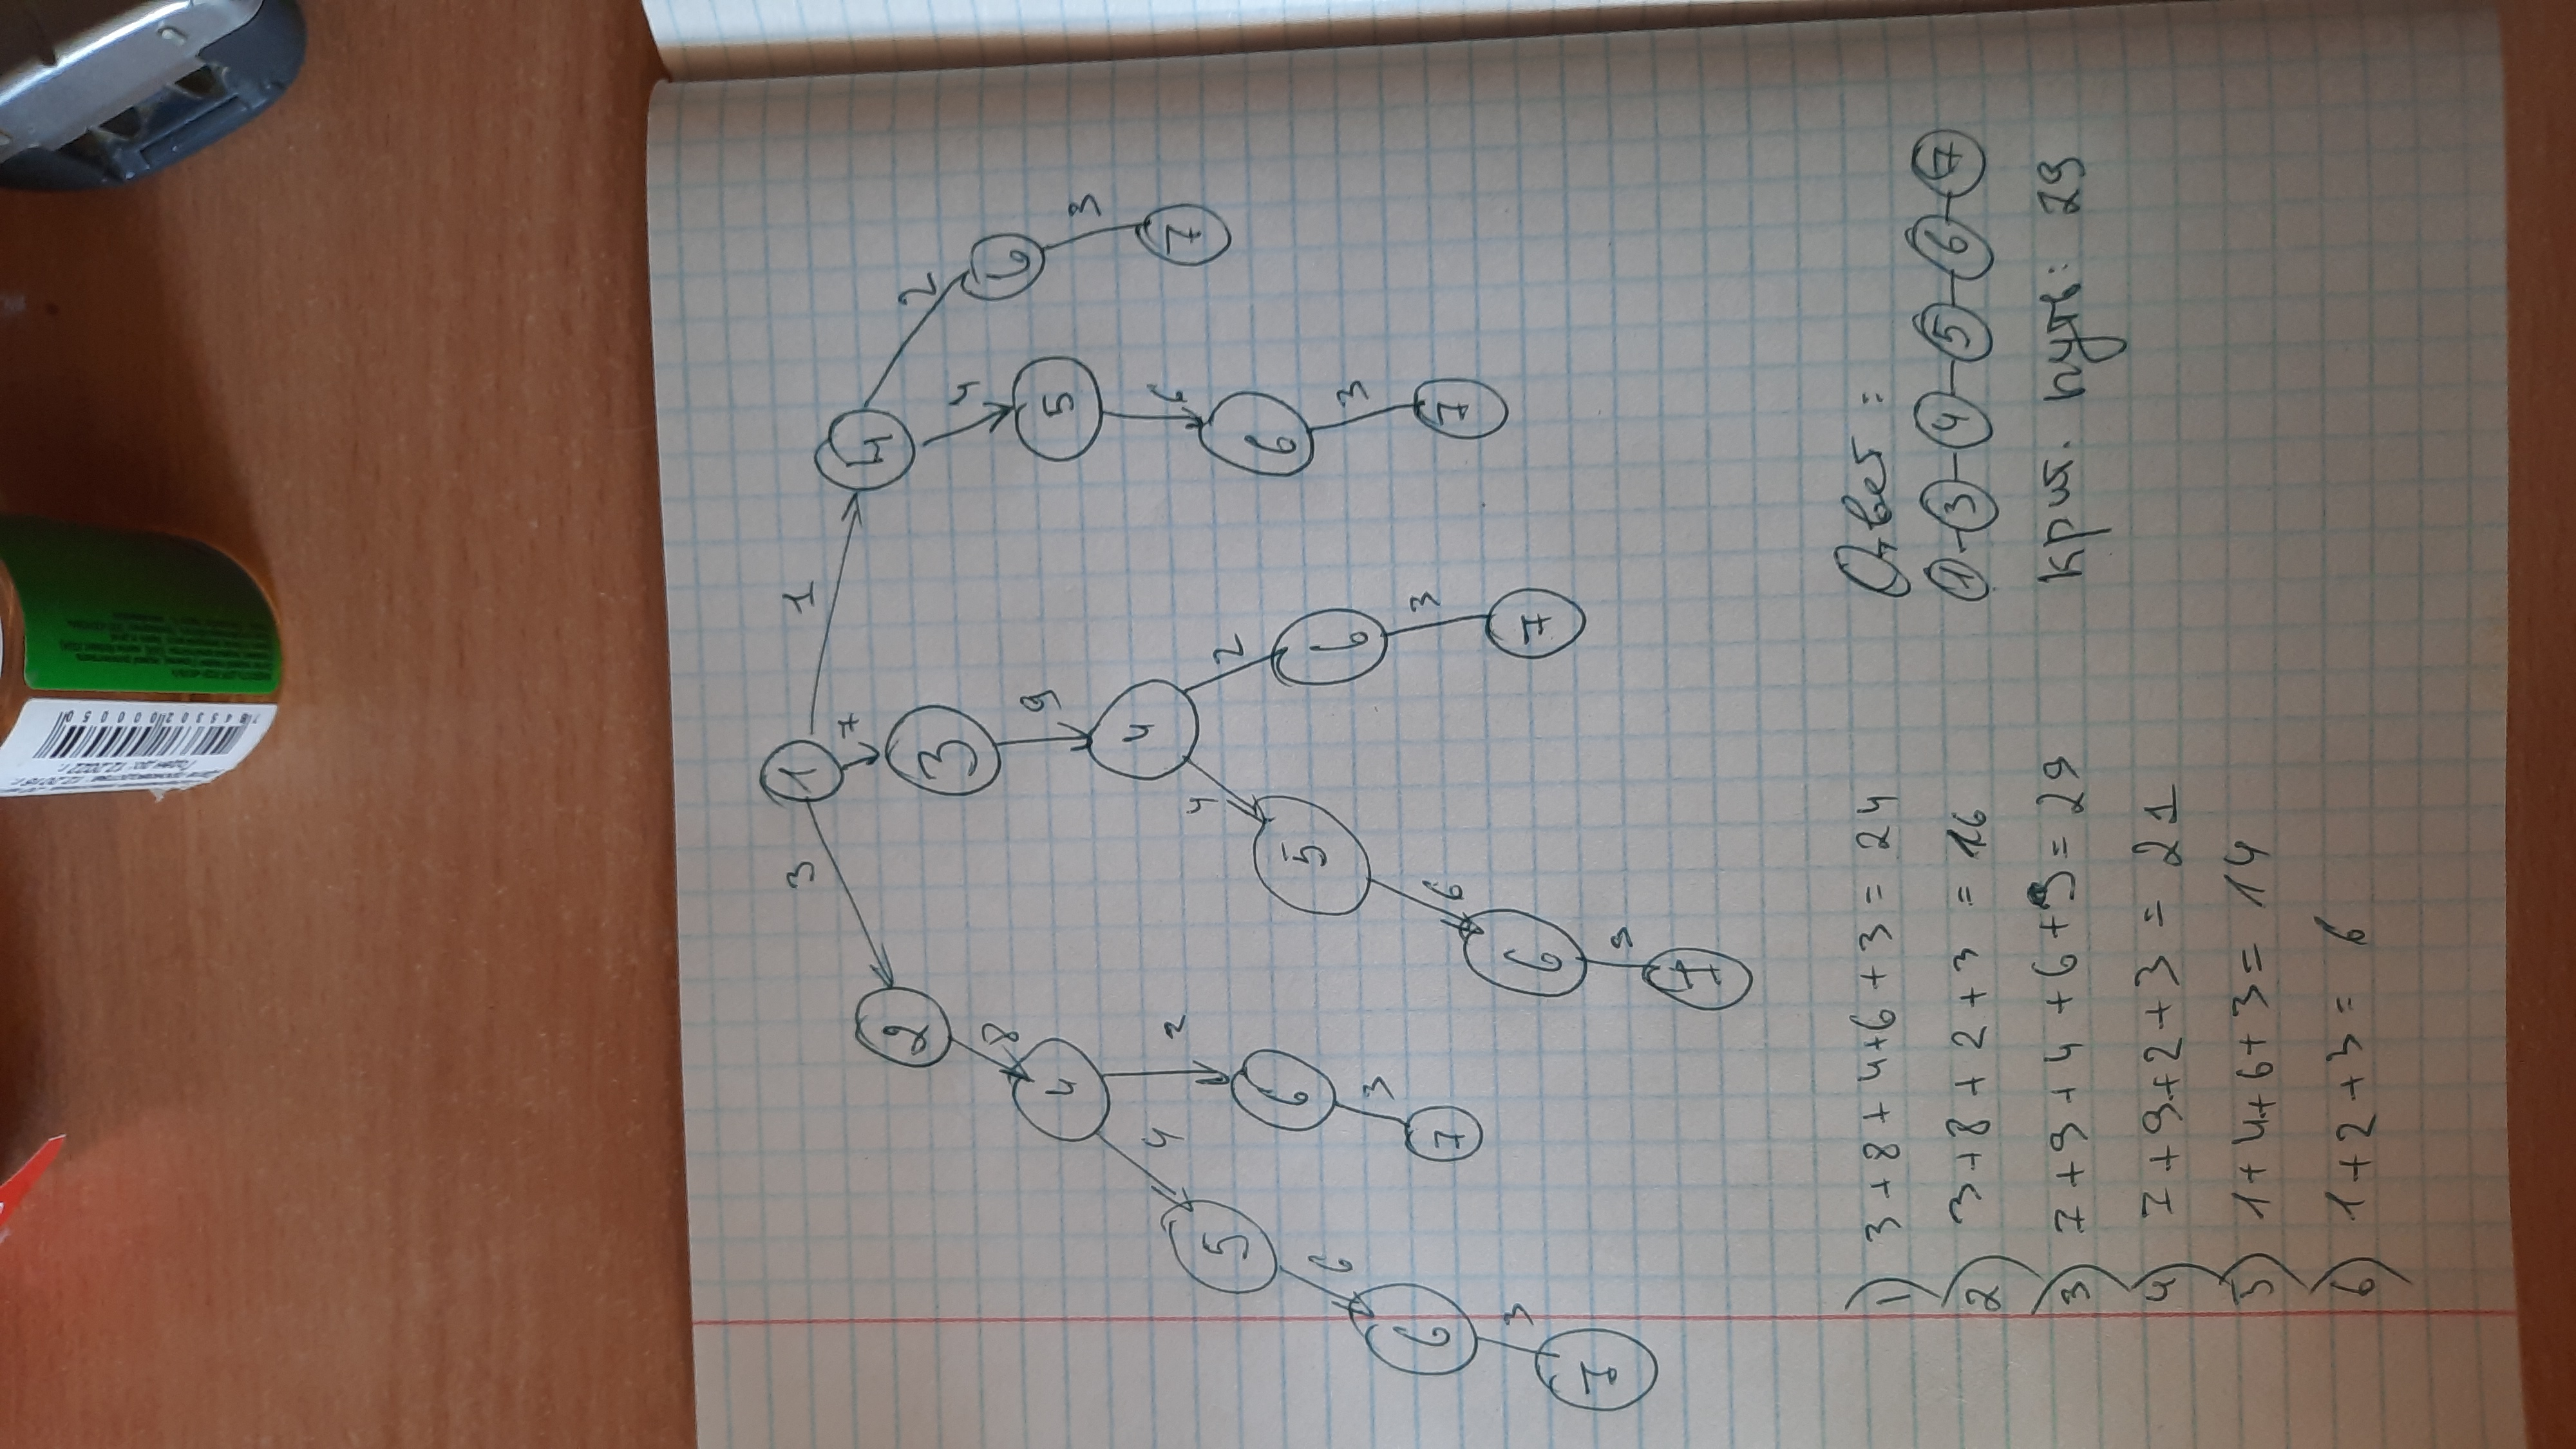 Годен до: 12.2022 г.
1
3 7 1
2 3 4
8 9 4 2
4 4 5 6
4 2 4 2 6 3
5 6 5 6 6 7
6 3 6 3 3
6 7 6 7 7
3 3
7 7
1) 3+8+4+6+3=24
2) 3+8+2+3=16
3) 7+9+4+6+3=29
4) 7+9+2+3=21
5) 1+4+6+3=14
6) 1+2+3=6
Ответ:
1-3-4-5-6-7
крит. путь: 29